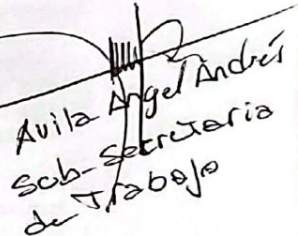 Avila Angel Andrés
Sub-Secretaria
de Trabajo